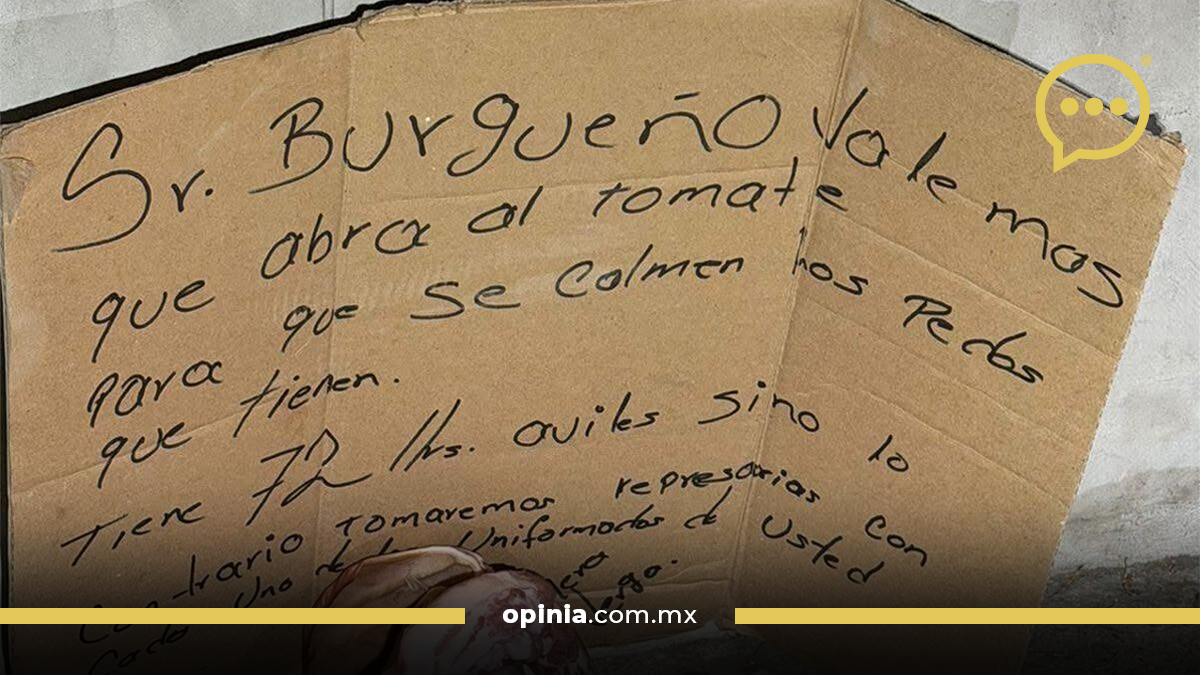 Sr. Burgueño Vale mas
que abra al tomate
para que se Colmen los Pedos
que tienen.
Tiene 72 Hrs. aviles sino lo
Contrario tomaremos represarias con
Cada Uno de los Uniformados de Usted
opinia.com.mx